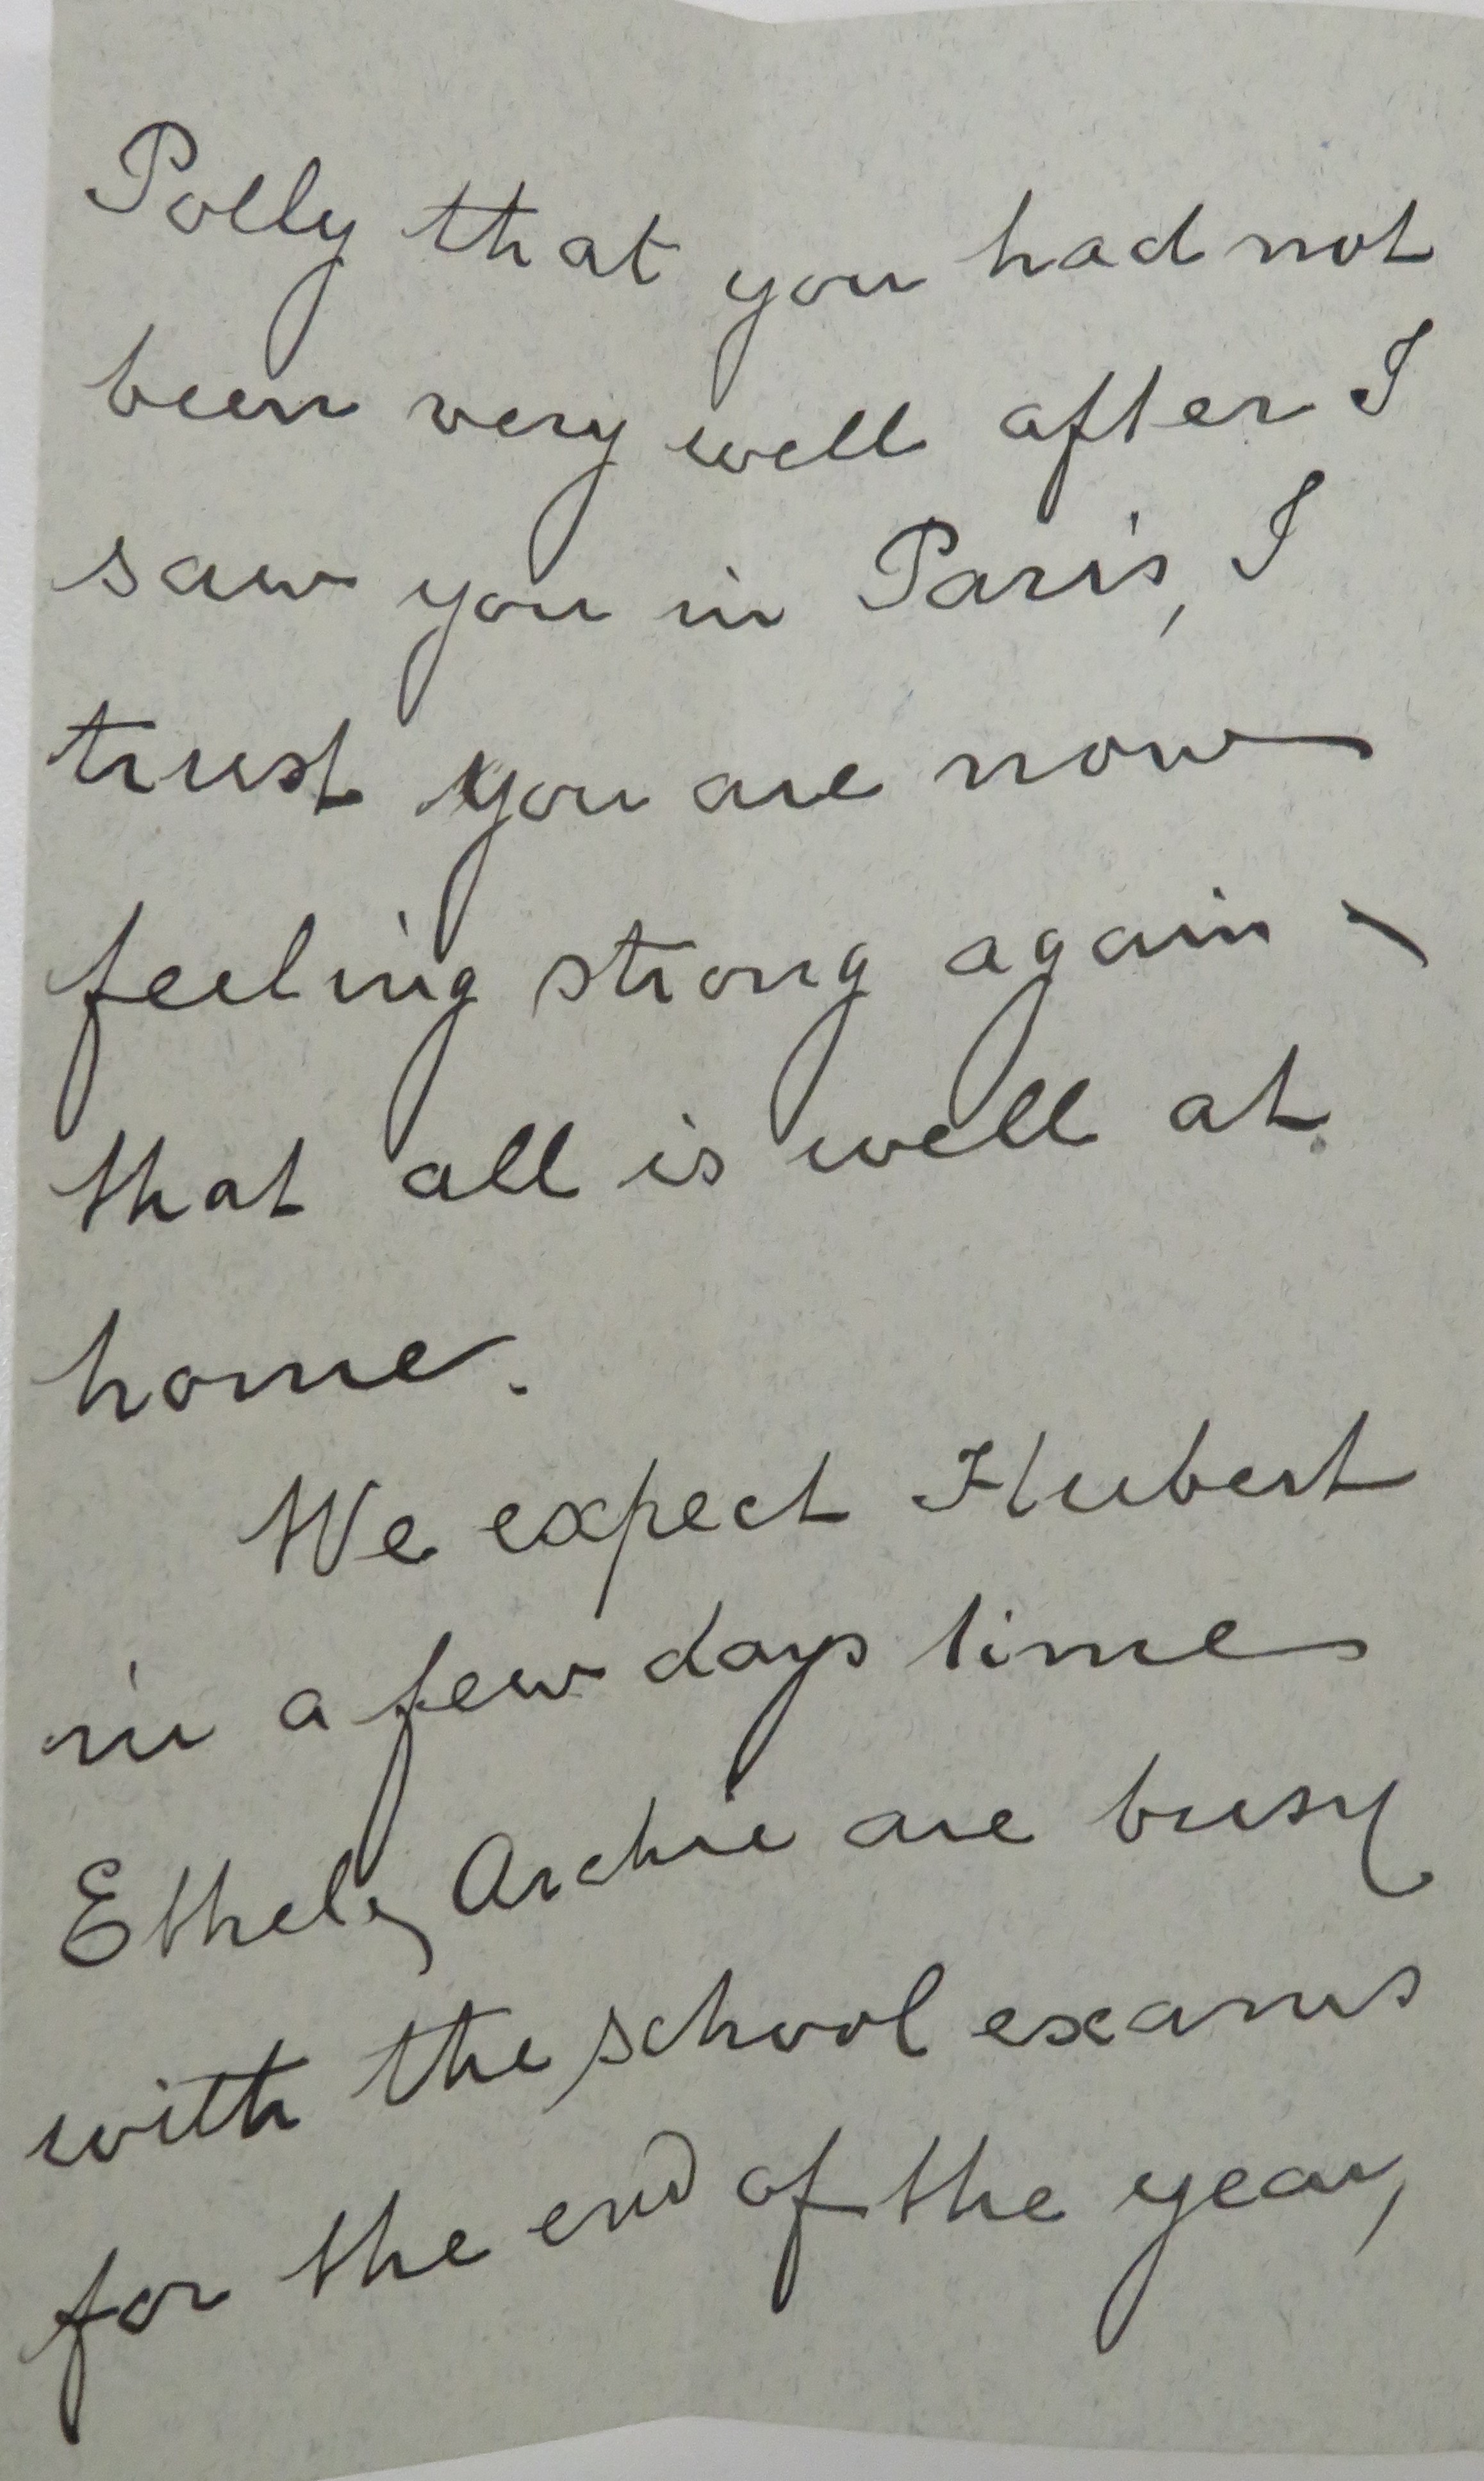 Polly that you had not
been very well after I
saw you in Paris, I
trust you are now
feeling strong again &
that all is well at
home.
We expect Hubert
in a few days time
Ethel & Archie are busy
with the school exams
for the end of the year,